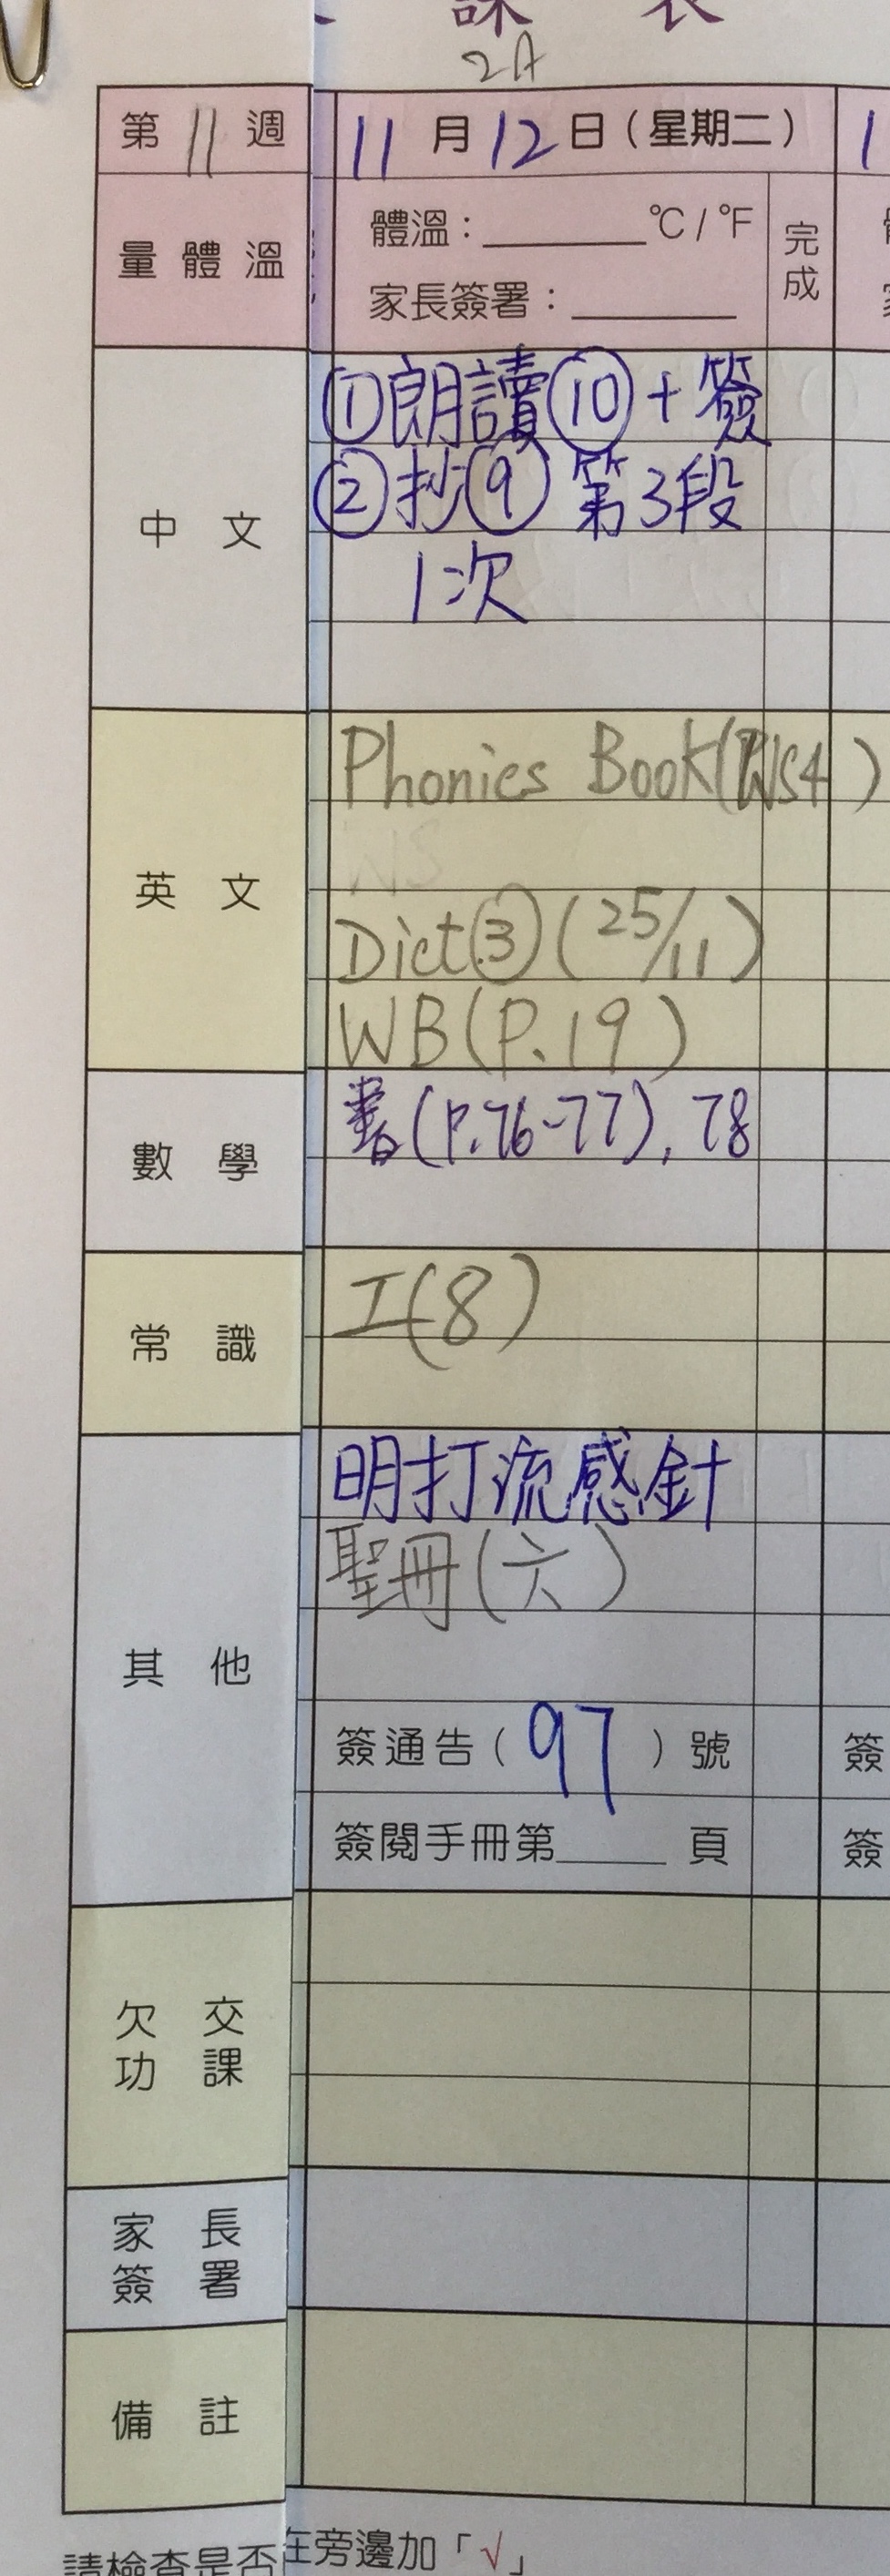 課 表
2A
第 11 週
11 月 12 日（星期二）
量 體 溫
體溫：______°C / °F
家長簽署：______
完成
中 文
①朗讀⑩+簽
②抄⑨ 第3段
1次
英 文
Phonics Book(WS4)
WS
Dict③(25/11)
WB(P.19)
數 學
書(P.76-77), 78
常 識
工(8)
其 他
明打流感針
聖冊(六)
簽通告（97）號
簽
簽閱手冊第____頁
簽
欠 交
功 課
家 長
簽 署
備 註
請檢查是否
在旁邊加「√」